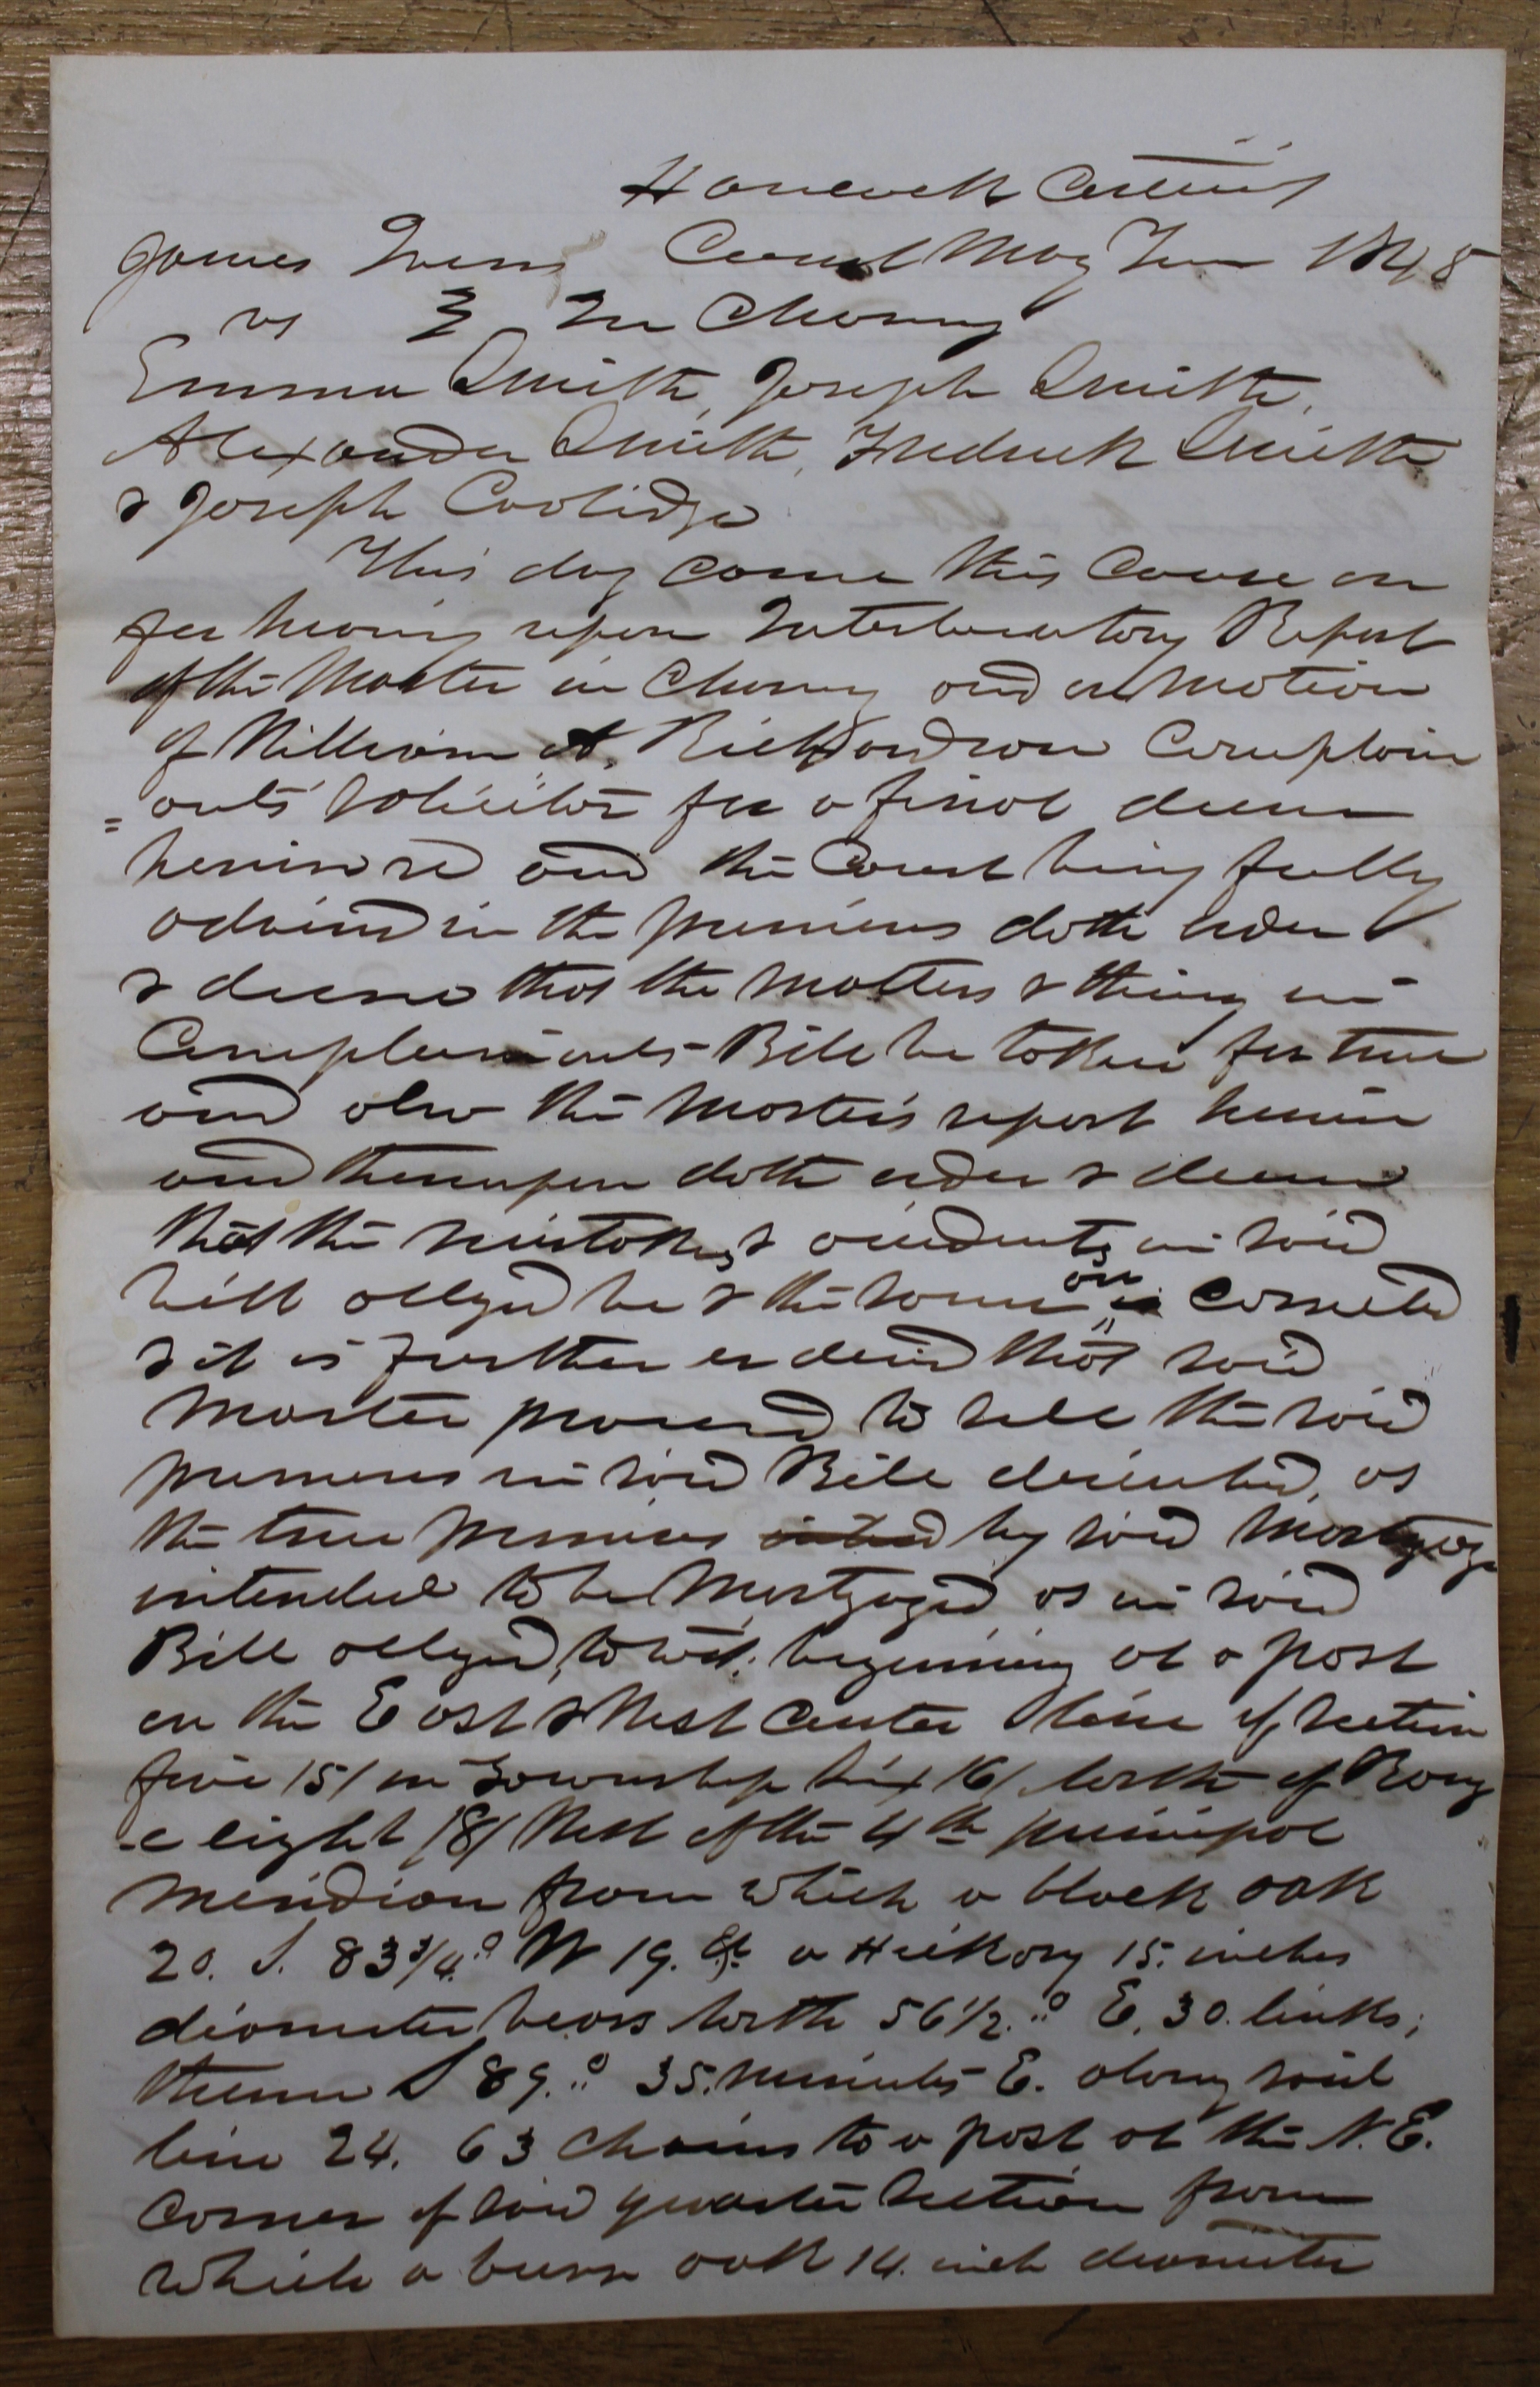 Hancock Circuit
James Ivins Court May Term 1848
vs } In Chancery
Emma Smith, Joseph Smith,
Alexander Smith, Fredrick Smith
& Joseph Coolidge
This day came this Cause on
for hearing upon Interlocutory Report
of the Master in Chancery and on motion
of William A. Richardson Complain
=ants Solicitor for a final decree
herein and the Court being fully
advised in the premises doth order
& decree that the matters & things in
Complainants Bill be taken for true
and also the Masters report herein
and thereupon doth order & decree
that the mistakes & accidents in said
bill alleged be & the same are corrected
& it is further ordered that said
Master proceed to sell the said
premises in said Bill described, as
the true premises by said Mortgage
intended to be Mortgaged as in said
Bill alleged, to wit: beginning at a post
on the East & West Center line of Section
five /5/ in Township six /6/ North of Rang
-e eight /8/ West of the 4th principal
Meridian from which a black oak
20. S. 83 3/4.° W 19. & a Hickory 15. inches
diameter bears North 56 1/2.° E. 30. links;
thence S 89.° 35. minutes E. along said
line 24. 63 chains to a post at the N. E.
corner of said quarter Section from
which a burr oak 14. inch diameter